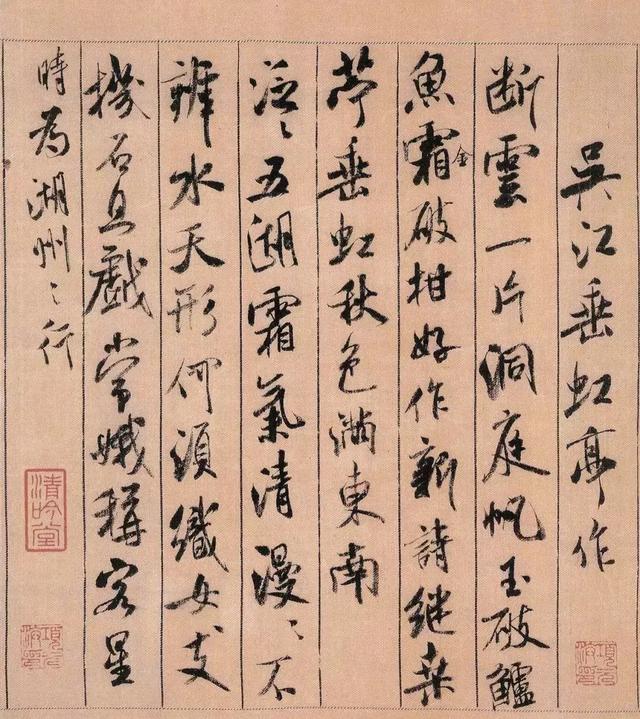 吳江垂虹亭作
断雲一片洞庭帆玉破鱸
魚霜金破柑好作新詩継桑
苧垂虹秋色滿東南
泛〻五湖霜氣清漫〻不
辨水天形何須織女支
機石且戲常娥稱客星
時為湖州〻行
清吟堂